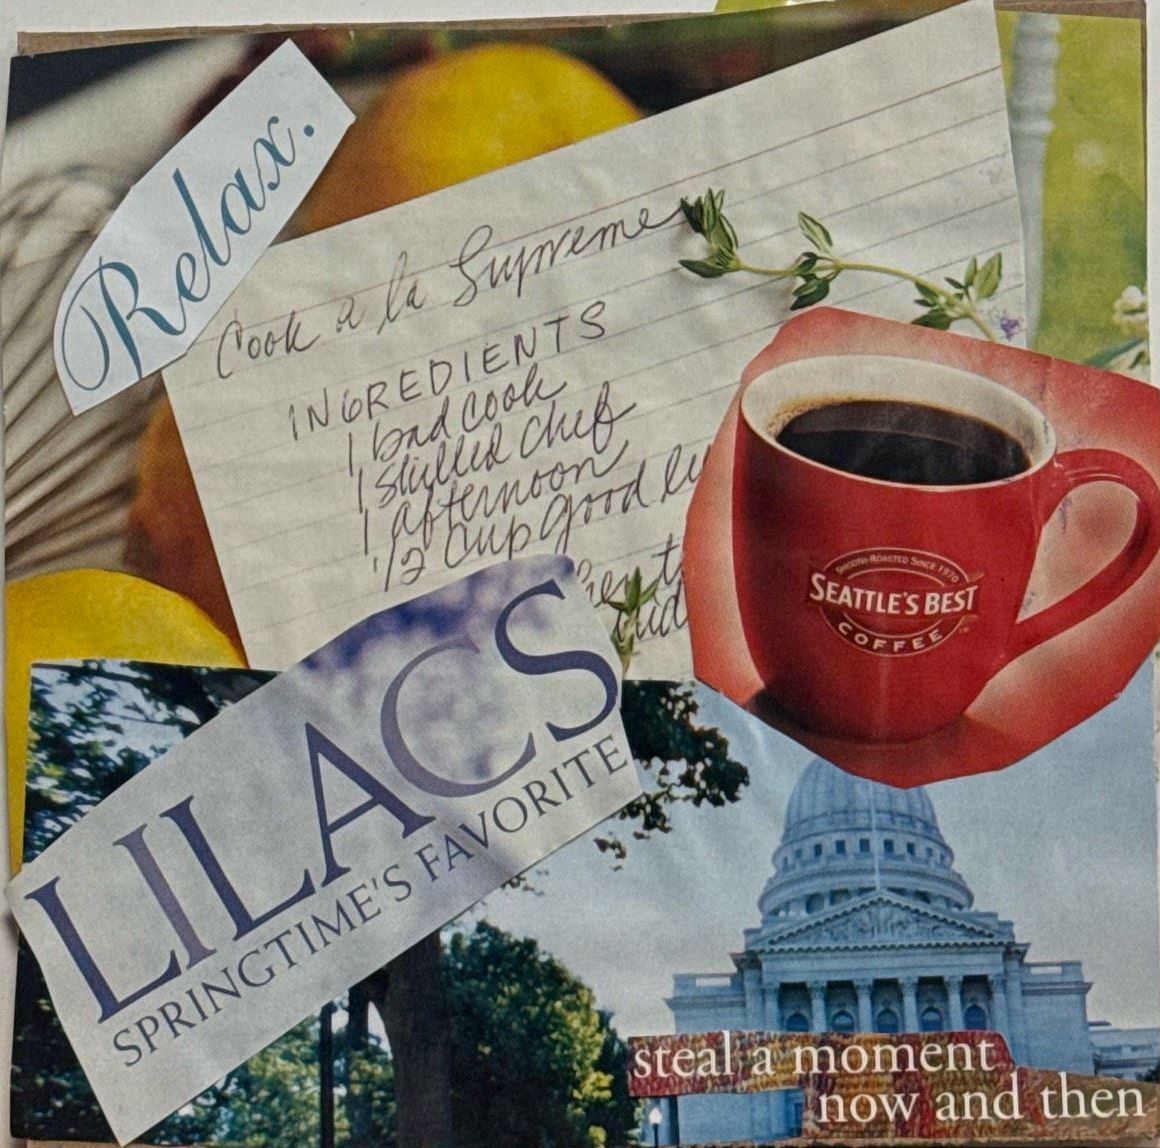 Relax.
Cook a la Supreme
INGREDIENTS
1 bad cook
1 skilled chef
1 afternoon
1/2 cup good
SMOOTH-ROASTED SINCE 1970
SEATTLE'S BEST
COFFEE™
LILACS
SPRINGTIME'S FAVORITE
steal a moment
now and then